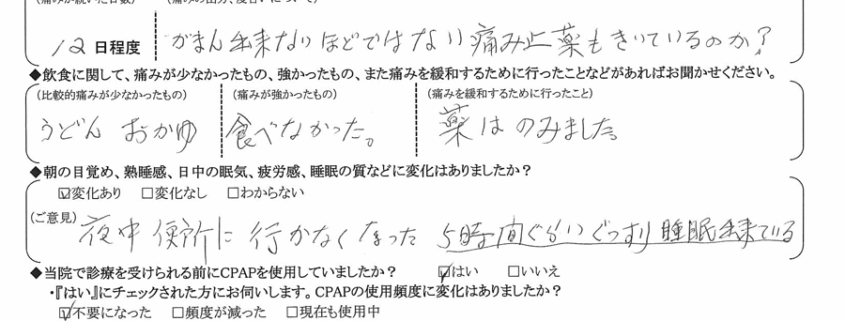 (痛みが続いた日数) (痛みの部分、度合いについて)
12日程度 がまん出来ないほどではない 痛み止薬もきいているのか?
◆飲食に関して、痛みが少なかったもの、強かったもの、また痛みを緩和するために行ったことなどがあればお聞かせください。
(比較的痛みが少なかったもの) (痛みが強かったもの) (痛みを緩和するために行ったこと)
うどん おかゆ 食べなかった。 薬はのみました。
◆朝の目覚め、熟睡感、日中の眠気、疲労感、睡眠の質などに変化はありましたか?
☑変化あり □変化なし □わからない
(ご意見) 夜中便所に行かなくなった 5時間ぐらいぐっすり睡眠出来ている
◆当院で診療を受けられる前にCPAPを使用していましたか? ☑はい □いいえ
・『はい』にチェックされた方にお伺いします。CPAPの使用頻度に変化はありましたか?
☑不要になった □頻度が減った □現在も使用中